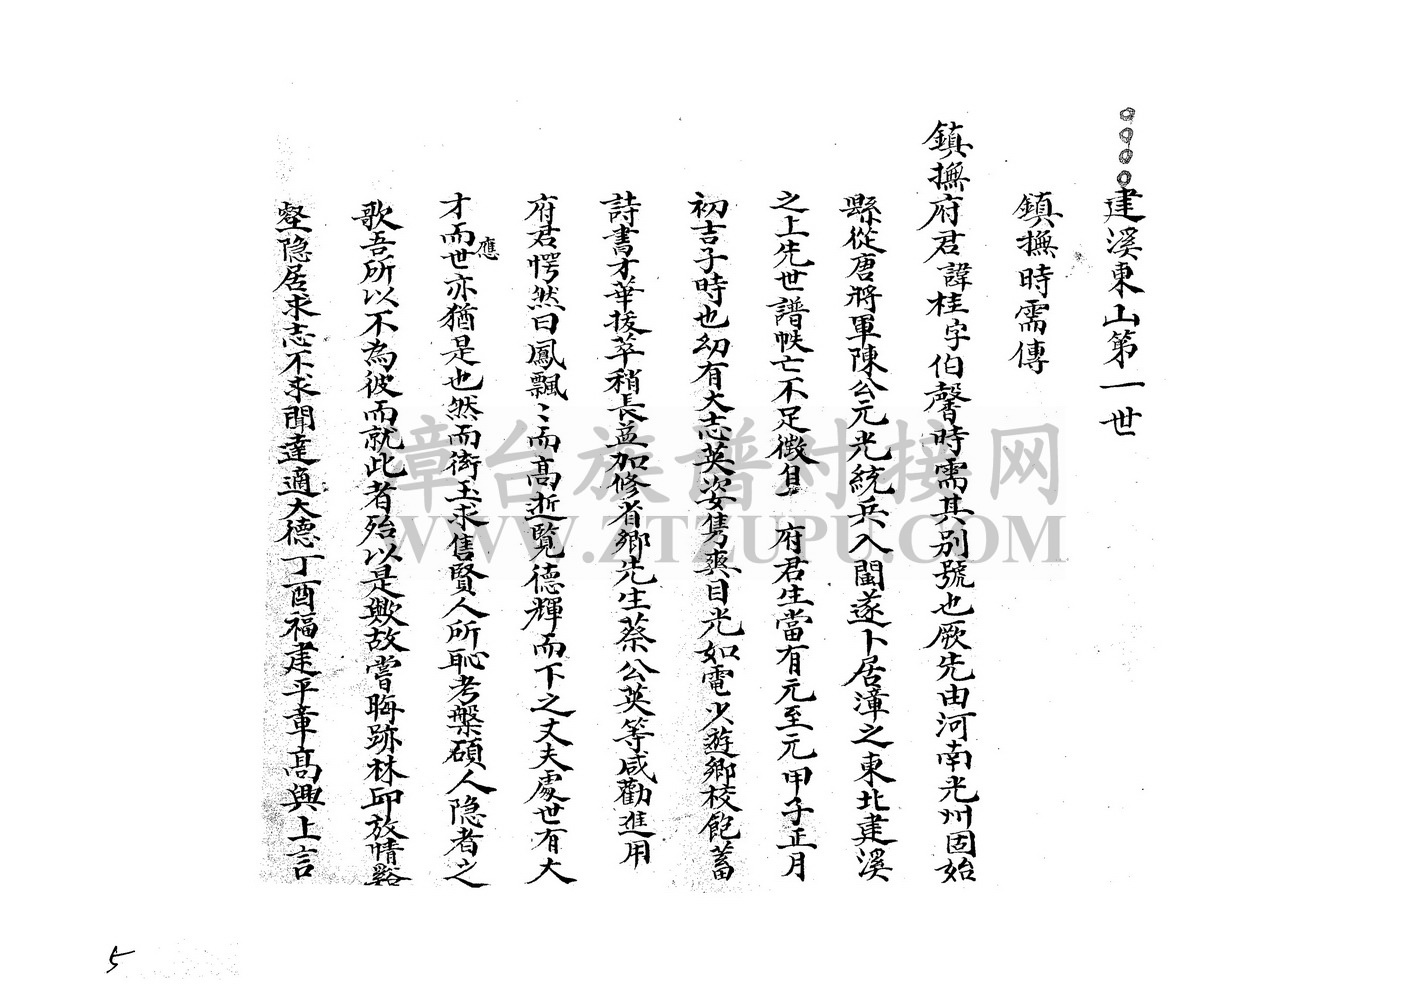 建溪東山第一世
鎮撫時需傳
鎮撫府君諱桂字伯馨時需其别號也厥先由河南光州固始
縣從唐將軍陳公元光統兵入閩遂卜居漳之東北建溪
之上先世譜帙亡不足徴自 府君生當有元至元甲子正月
初吉子時也幼有大志英姿隽爽目光如電少遊鄉校飽蓄
詩書才華拔萃稍長益加修省鄉先生蔡公英等咸勸進用
府君愕然曰鳳飄〻而高逝覽德輝而下之丈夫處世有大
才而世應亦猶是也然而衒玉求售賢人所恥考槃碩人隐者之
歌吾所以不為彼而就此者殆以是歟故嘗晦跡林邱放情谿
壑隐居求志不求聞達適大德丁酉福建平章髙興上言
漳台族谱对接网
WWW.ZTZUPU.COM
5